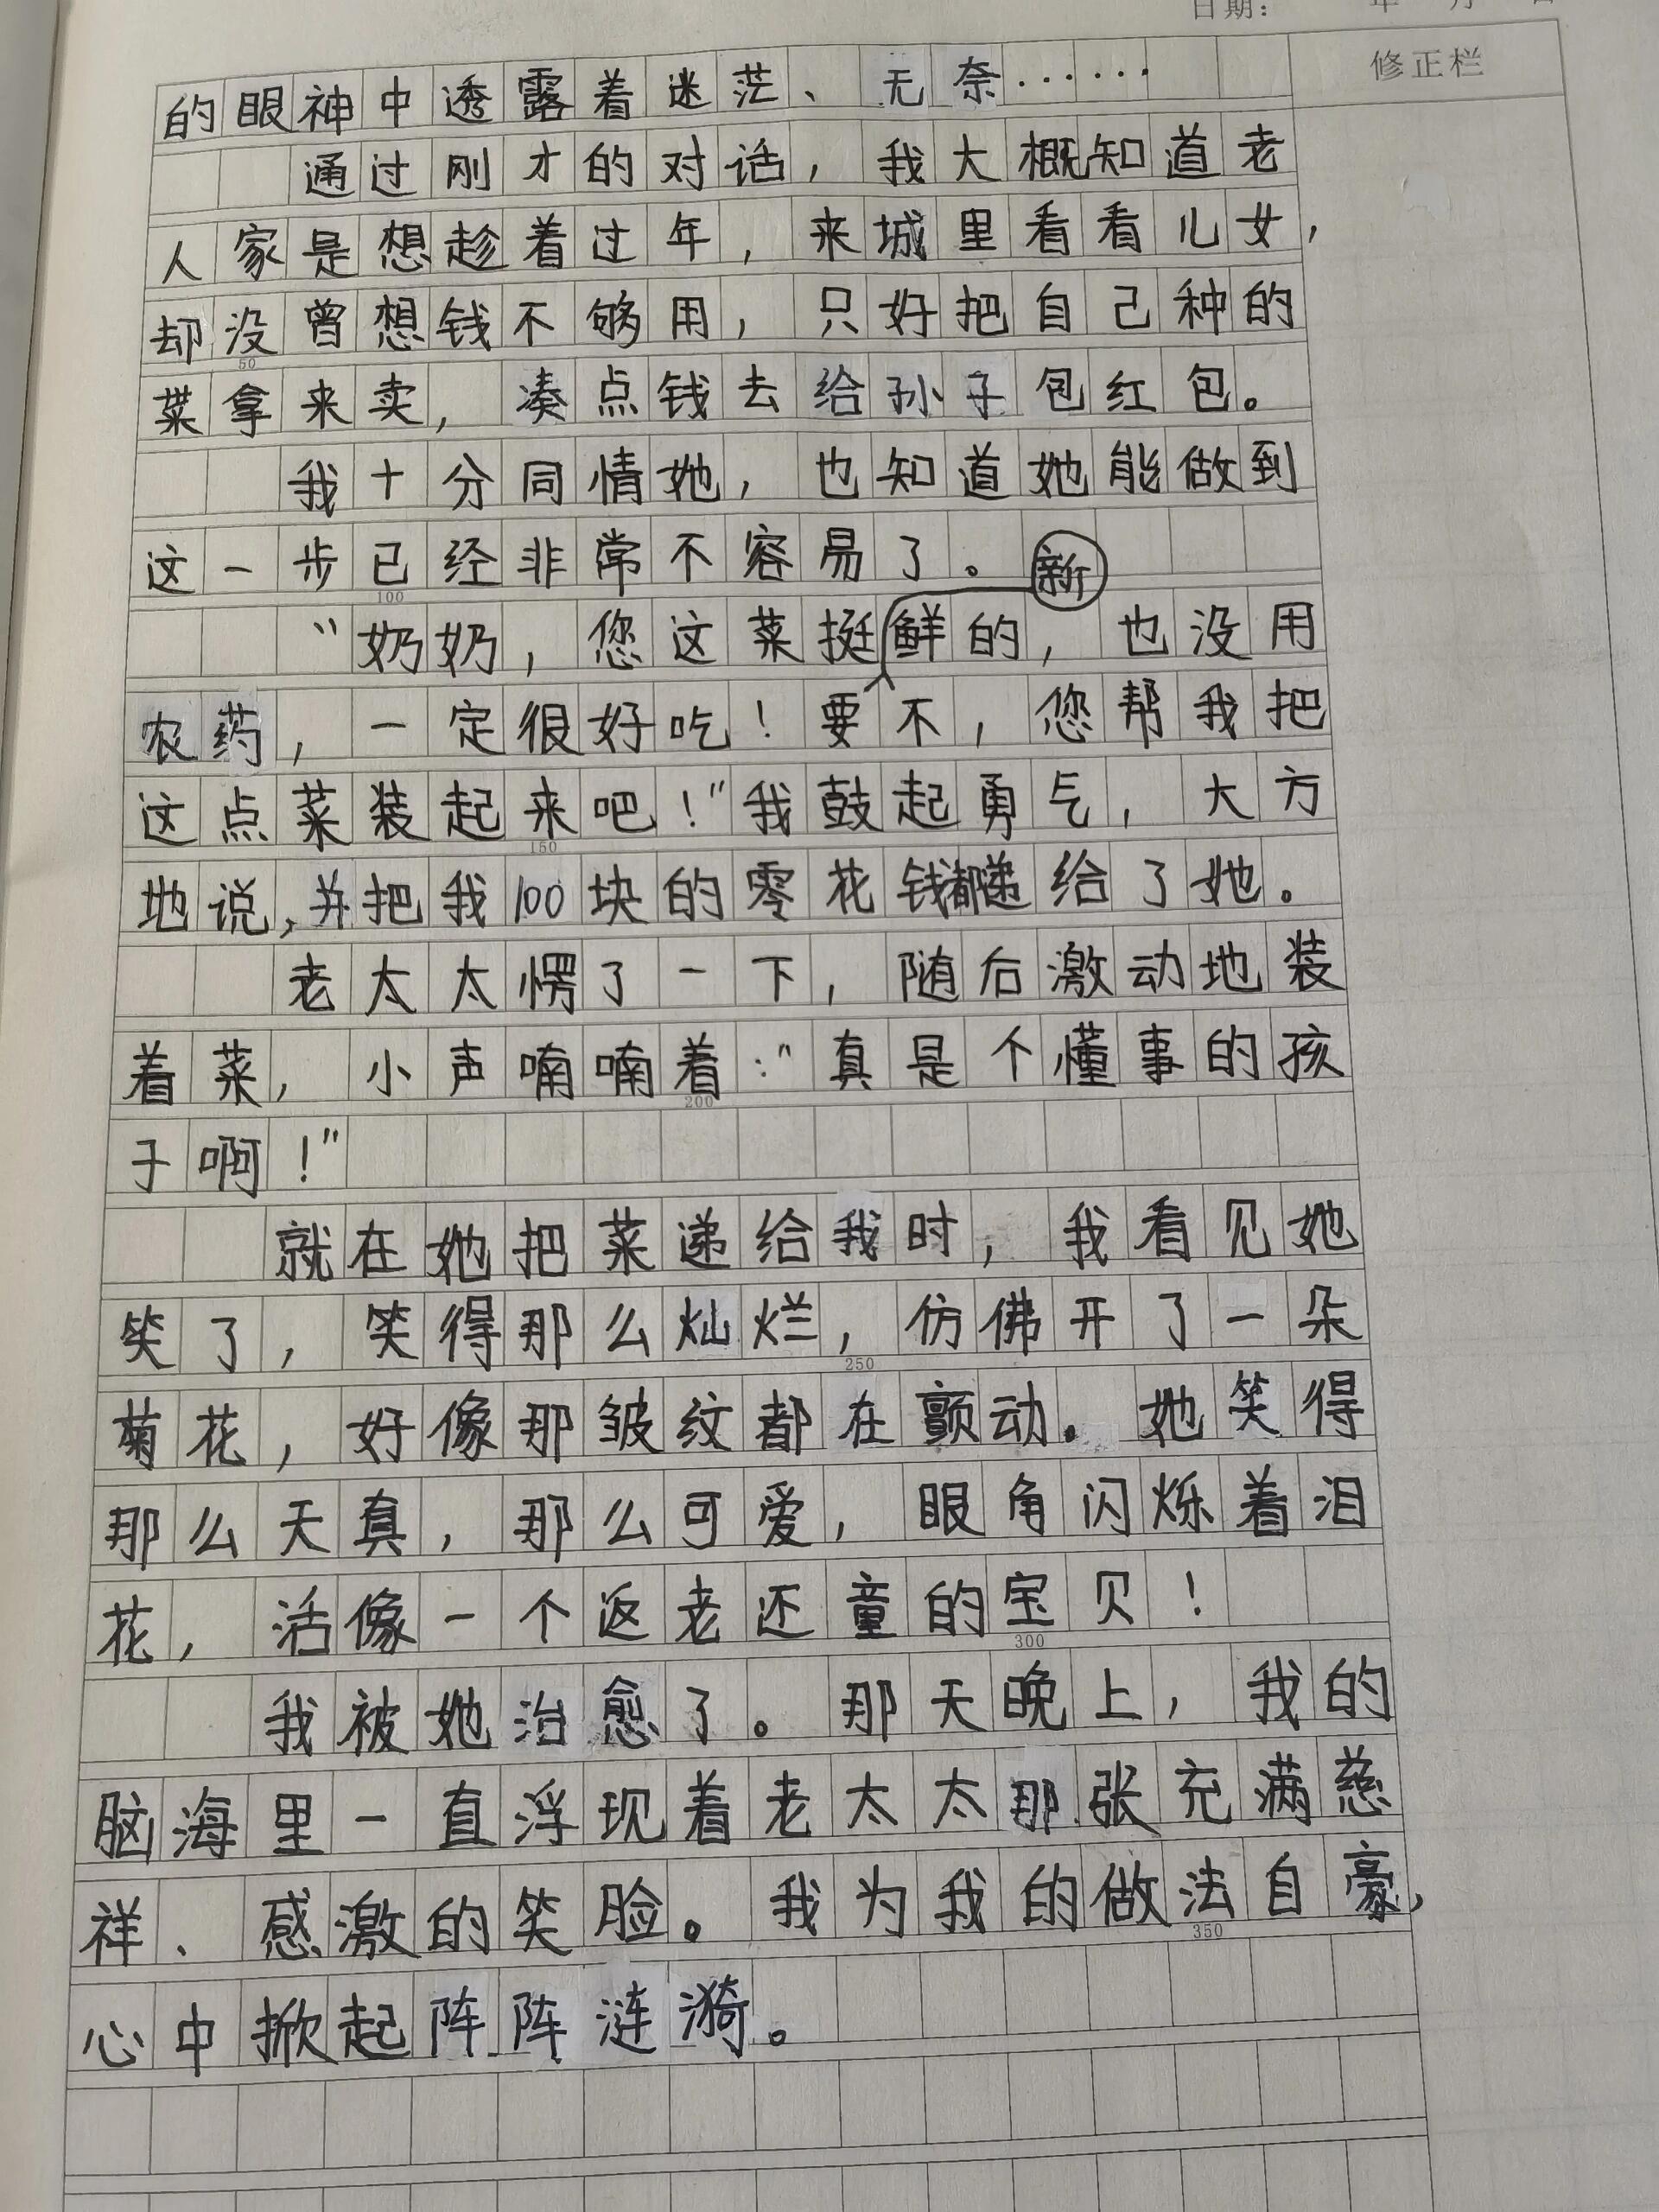 日期: 年 月 日
修正栏
的眼神中透露着迷茫、无奈……
通过刚才的对话，我大概知道老
人家是想趁着过年，来城里看看儿女，
却没曾想钱不够用，只好把自己种的
50
菜拿来卖，凑点钱去给孙子包红包。
我十分同情她，也知道她能做到
这一步已经非常不容易了。
100
“奶奶，您这菜挺新鲜的，也没用
农药，一定很好吃！要不，您帮我把
这点菜装起来吧！”我鼓起勇气，大方
150
地说，并把我100块的零花钱都递给了她。
老太太愣了一下，随后激动地装
着菜，小声喃喃着：“真是个懂事的孩
200
子啊！”
就在她把菜递给我时，我看见她
笑了，笑得那么灿烂，仿佛开了一朵
250
菊花，好像那皱纹都在颤动。她笑得
那么天真，那么可爱，眼角闪烁着泪
花，活像一个返老还童的宝贝！
300
我被她治愈了。那天晚上，我的
脑海里一直浮现着老太太那张充满慈
祥、感激的笑脸。我为我的做法自豪，
350
心中掀起阵阵涟漪。